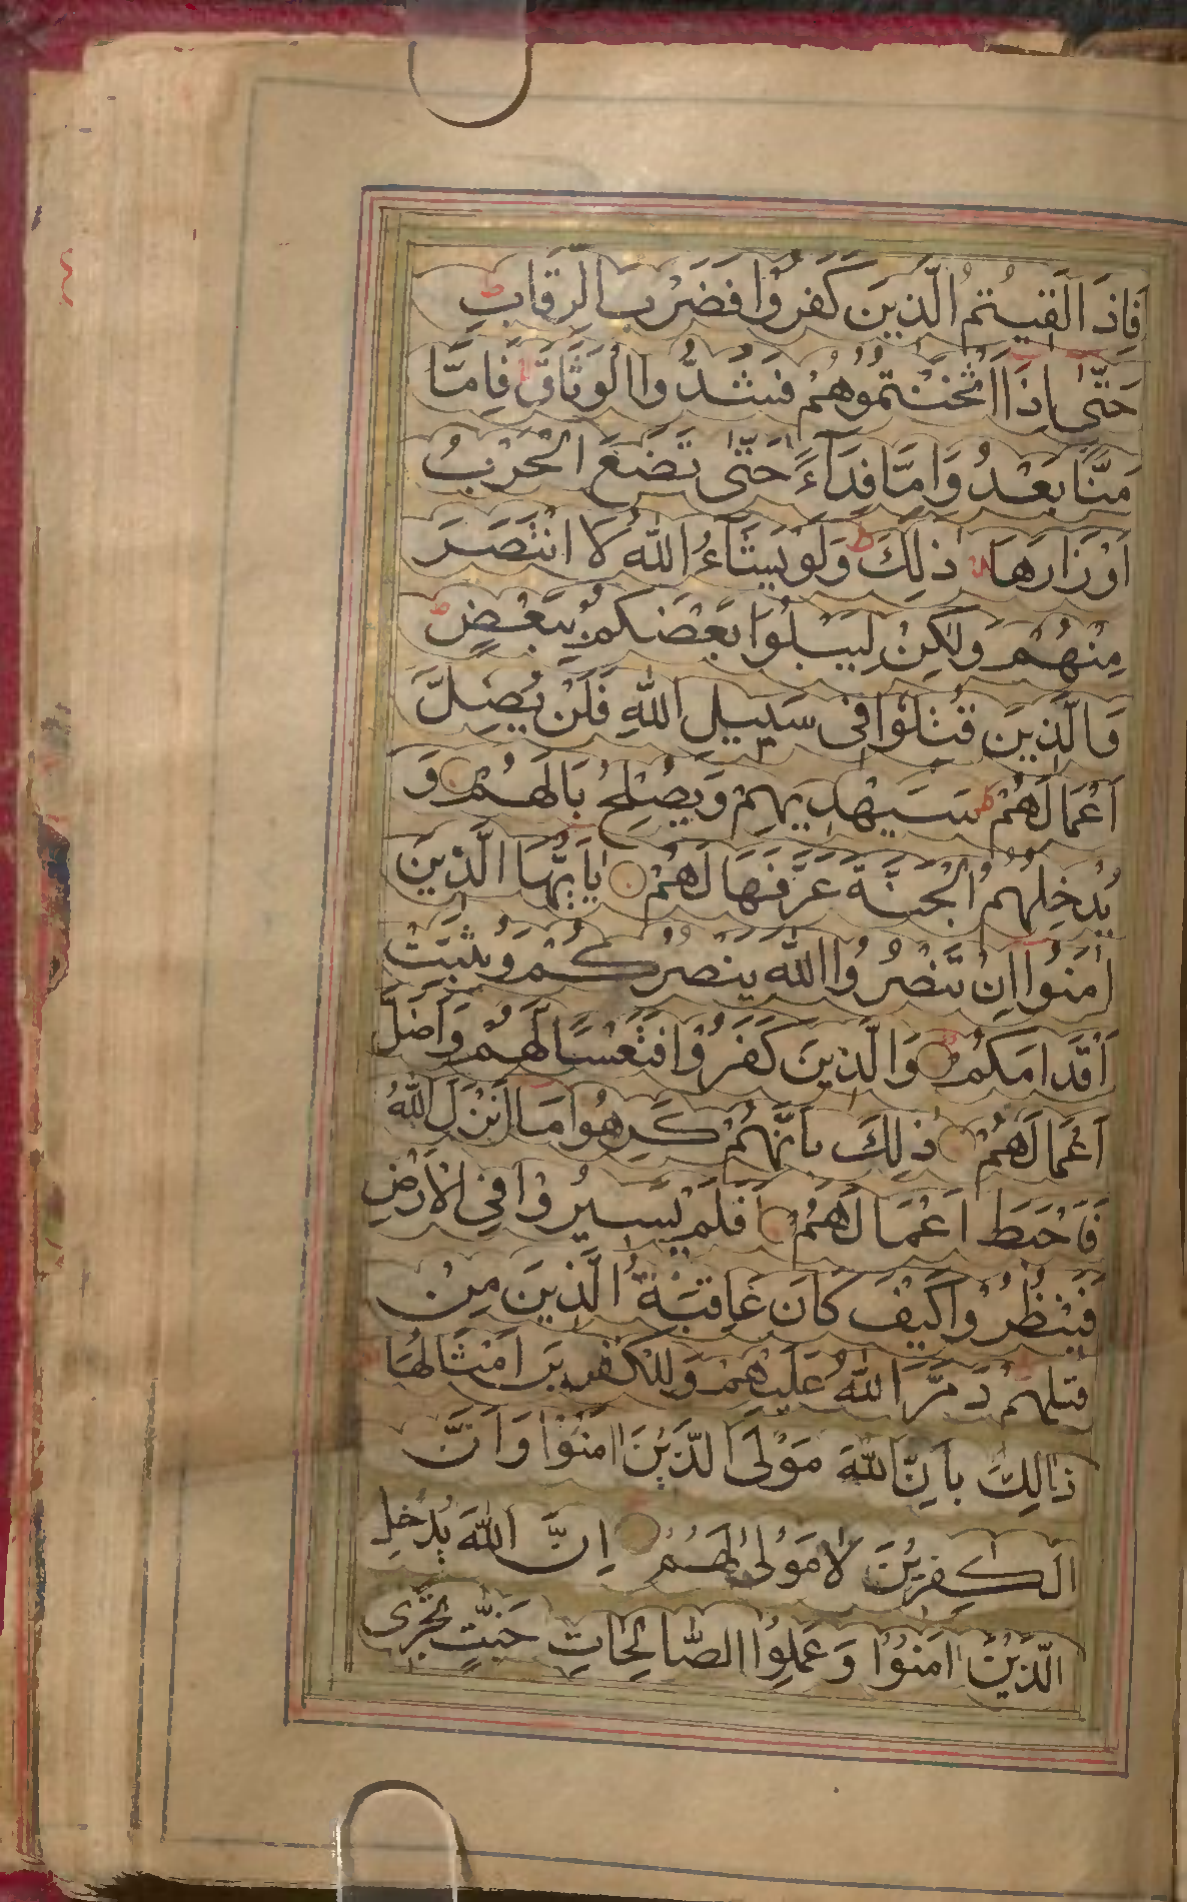 فَاِذَ الَقِيْتُمُ الَّذِيْنَ كَفَرُوْا فَضَرْبَ الرِّقَابِ ط
حَتّٰى اِذَا اَثْخَنْتُمُوْهُمْ فَشُدُّ وا الْوَثَاقَ فَاِمَّا
مَنَّا بَعْدُ وَاِمَّا فِدَآءً حَتّٰى تَضَعَ الْحَرْبُ
اَوْزَارَهَا ذٰلِكَ ط وَلَوْ يَشَآءُ اللهُ لَا انْتَصَرَ
مِنْهُمْ وَلٰكِنْ لِيَبْلُوَا بَعْضَكُمْ بِبَعْضٍ ط
وَالَّذِيْنَ قُتِلُوْا فِىْ سَبِيْلِ اللهِ فَلَنْ يُضِلَّ
اَعْمَالَهُمْ ط سَيَهْدِيْهِمْ وَيُصْلِحُ بَالَهُمْ وَ
يُدْخِلُهُمُ الْجَنَّةَ عَرَّفَهَا لَهُمْ يٰاَيُّهَا الَّذِيْنَ
اٰمَنُوْا اِنْ تَنْصُرُ وا اللهَ يَنْصُرْكُمْ وَيُثَبِّتْ
اَقْدَامَكُمْ وَالَّذِيْنَ كَفَرُوْا فَتَعْسًا لَّهُمْ وَاَضَلَّ
اَعْمَالَهُمْ ذٰلِكَ بِاَنَّهُمْ كَرِهُوْا مَا اَنْزَلَ اللهُ
فَاَحْبَطَ اَعْمَالَهُمْ اَفَلَمْ يَسِيْرُ وْا فِى الْاَرْضِ
فَيَنْظُرُ وْا كَيْفَ كَانَ عَاقِبَةُ الَّذِيْنَ مِنْ
قبلهِمْ دَمَّرَ اللهُ عَلَيْهِمْ وَلِلْكٰفِرِيْنَ اَمْثَالُهَا
ذٰالِكَ بِاَنَّ اللهَ مَوْلَى الَّذِيْنَ اٰمَنُوْا وَاَنَّ
الْكٰفِرِيْنَ لَا مَوْلٰى لَهُمْ اِنَّ اللهَ يُدْخِلُ
الَّذِيْنَ اٰمَنُوْا وَعَمِلُوا الصَّالِحَاتِ جَنّٰتٍ تَجْرِى